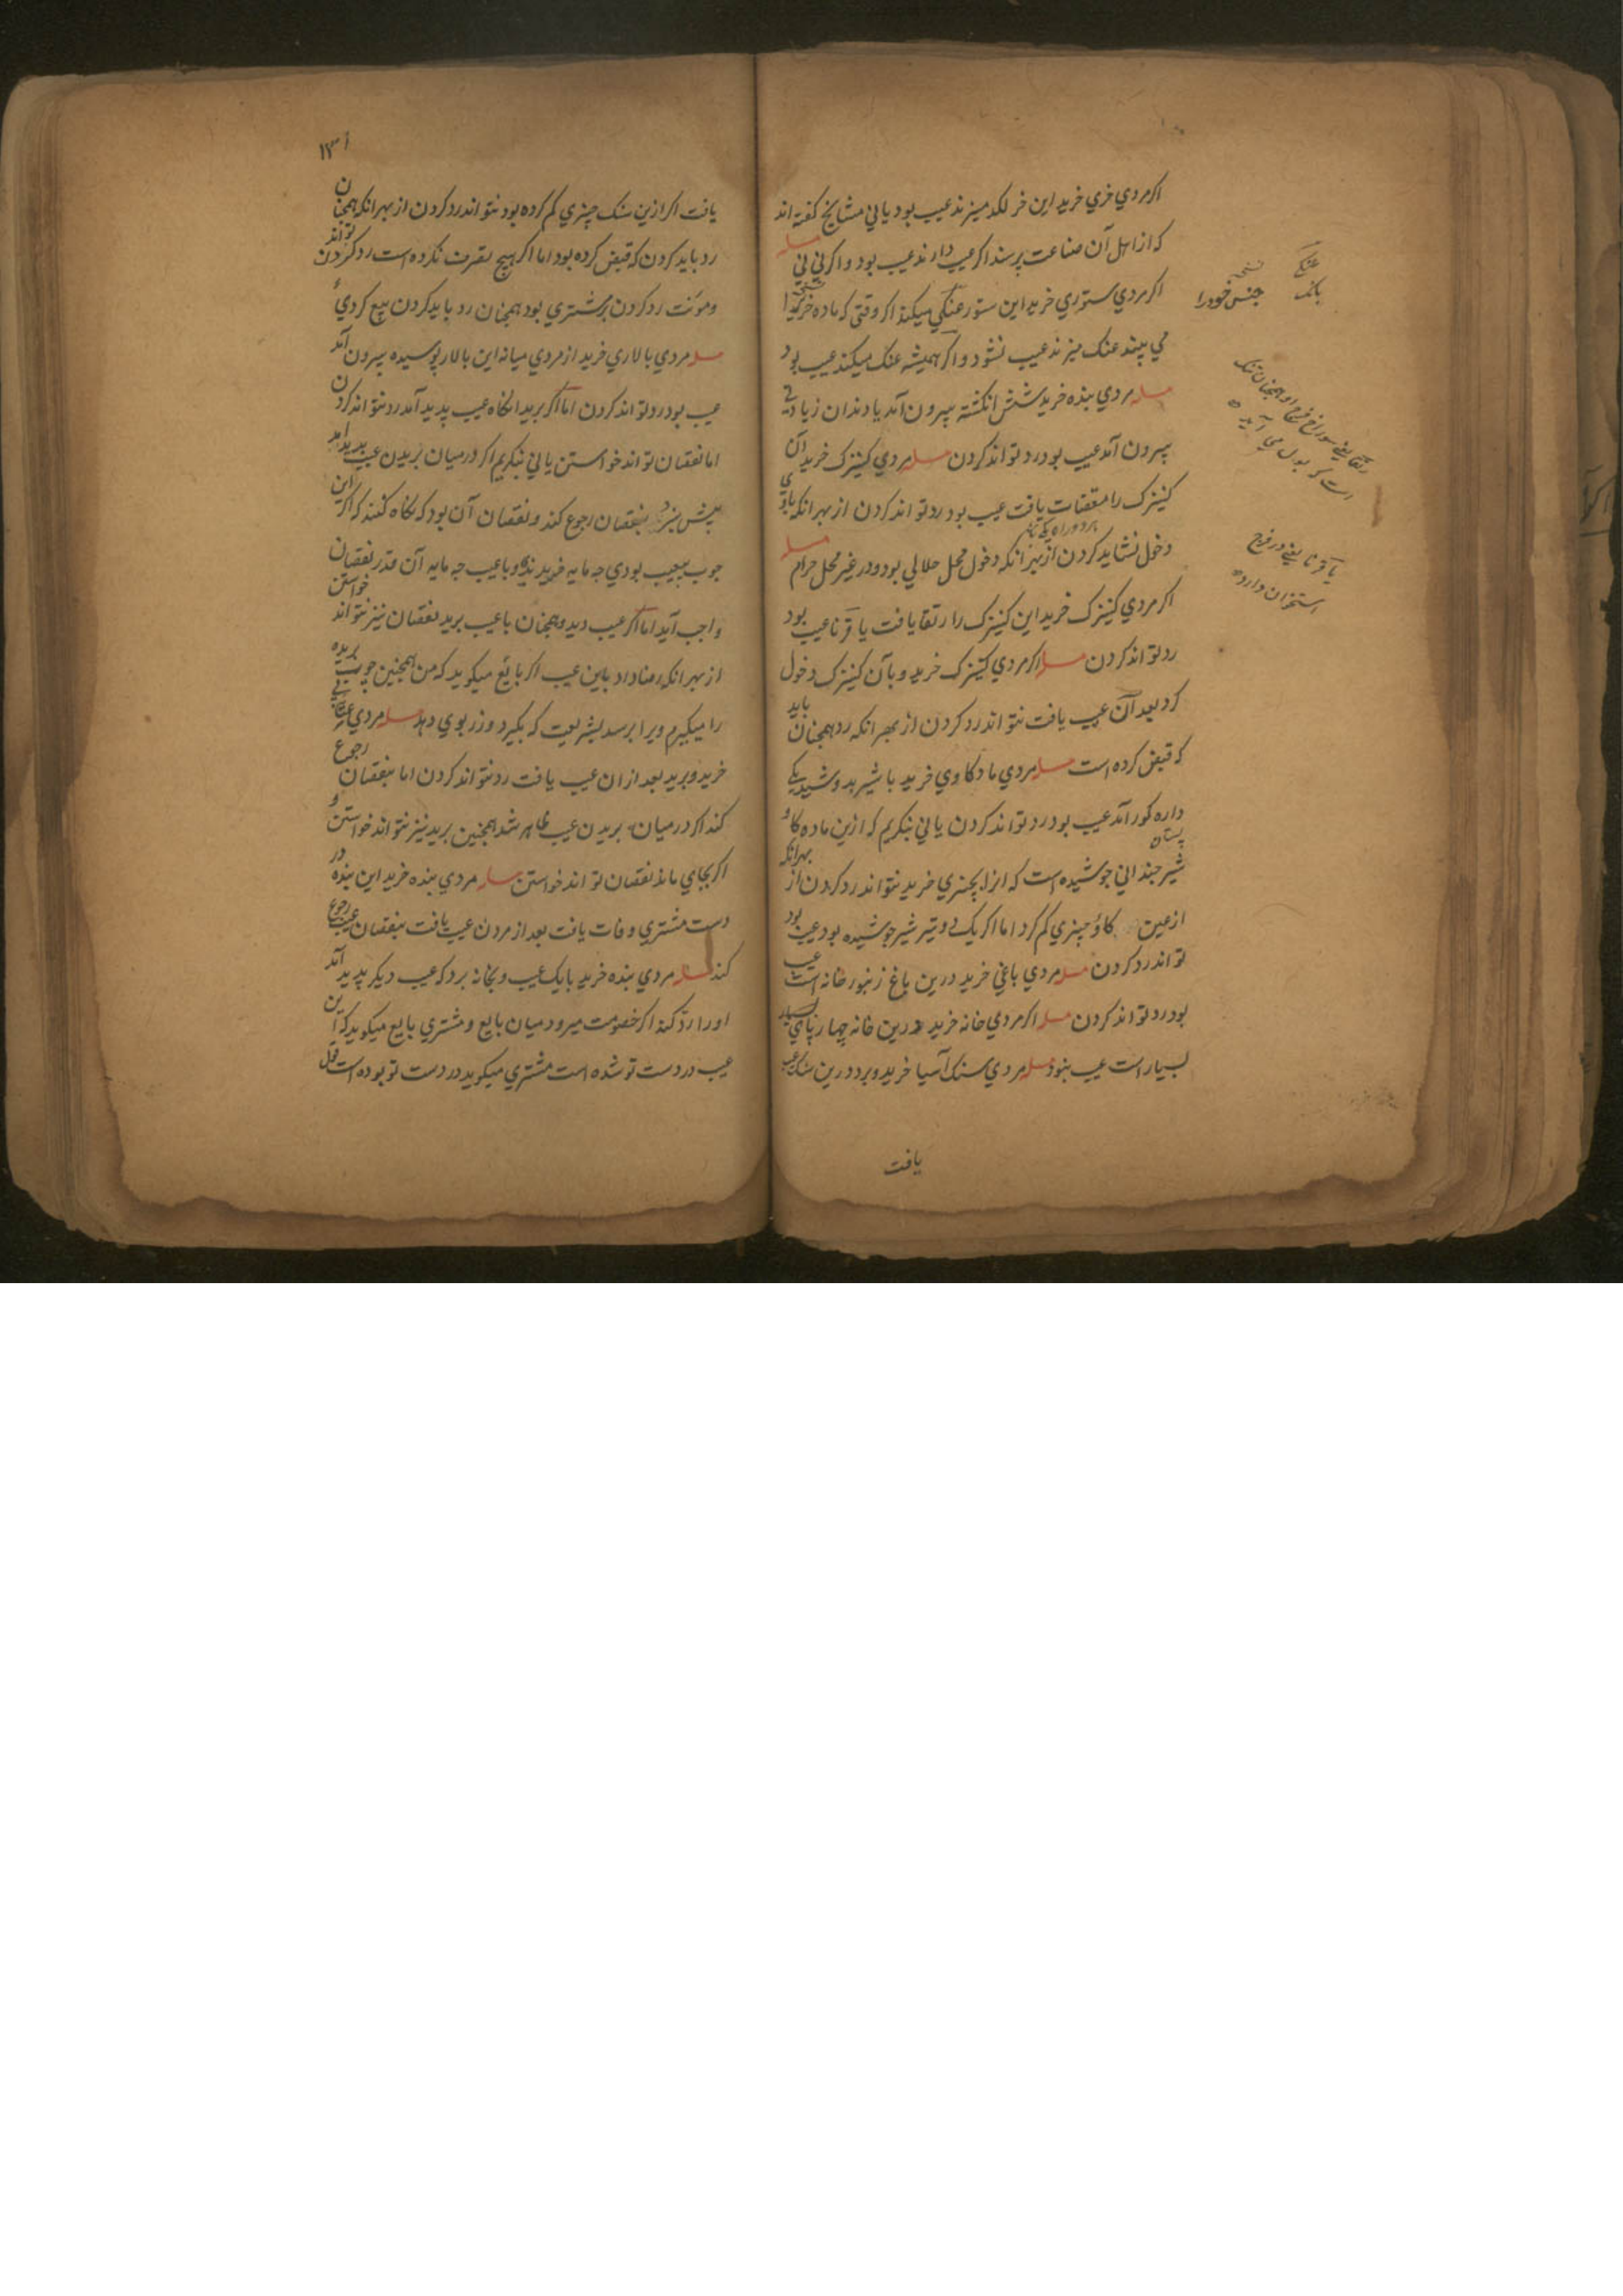 اکر مردي خري خرید این خر لکد میزند عیب بود یا ني مشایخ کفته اند
که از اهل آن صناعت پرسند اکر عیب دارند عیب بود و اکر ني ني مسله
اکر مردي ستوري خرید این ستور عنکي میکند اکر وقتی که ماده خر را
مي بیند عنک میزند عیب نشود و اکر همیشه عنک میکند عیب بود
مسله مردي بنده خرید شش انکشته بیرون آمد یا دندان زیادتي
بیرون آمد عیب بود رد تواند کردن مسله مردي کنیزک خرید آن
کنیزک را یافت عیب بود رد تواند کردن از بهر انکه باوي
دخول نشاید کردن از بهر انکه دخول محل حلالي بود و در غیر محل حرام مسله
اکر مردي کنیزک خرید این کنیزک را رتقا یافت یا قرنا عیب بود
رد تواند کردن مسله اکر مردي کنیزک خرید و بآن کنیزک دخول
کرد بعد آن عیب یافت نتواند رد کردن از بهر انکه رد همچنان باید
که قبض کرده است مسله مردي ماده کاوي خرید با شیر بدوشید یکي
داره کور آمد عیب بود رد تواند کردن یا ني بنکریم که ازین ماده کاو
شیر چنداني جوشیده است که از چیزي خرید نتواند رد کردن از بهر انکه
از عین کاو چیزي کم کرد اما اکر یک دو تیر شیر جوشیده بود عیب بود
تواند رد کردن مسله مردي باغي خرید درین باغ زنبور خانه است عیب
بود رد تواند کردن مسله اکر مردي خانه خرید درین خانه چهارپاي بسیار
بسیار است عیب نبود مسله مردي سنک آسیا خرید و برد درین سنک عیب
یافت
عنکي بانک
نسخه جنس خود را
رتقا یعنے سوراخ فرج او همچنان تنک
است که بول مي آید
یا قرنا یعنے در فرج
استخوان دارد
۱۳۱
یافت اکر ازین سنک چیزي کم کرده بود نتواند رد کردن از بهر انکه همچنان
رد باید کردن که قبض کرده بود اما اکر هیچ تصرف نکرده است رد کردن تواند
و مونت رد کردن بر مشتري بود همچنان رد باید کردن بیع کردي
مسله مردي بالاري خرید از مردي میانه این بالار پوسیده بیرون آمد
عیب بود رد تواند کردن اما اکر برید انکاه عیب پدید آمد رد نتواند کردن
اما نقصان تواند خواستن یا ني بنکریم اکر در میان بریدن عیب پدید آمد
بیش نبرد بنقصان رجوع کند و نقصان آن بود که نکاه کنند که اکر این
چوب بیعیب بودي چه مایه خریدندي و با عیب چه مایه آن قدر نقصان
واجب آید اما اکر عیب دید و همچنان با عیب برید نقصان نیز نتواند خواستن
از بهر انکه رضا داد باین عیب اکر بائع میکوید که من همچنین چوب بریده
را میکیرم ویرا برسد بشریعت که بکیرد و زر بوي دهد مسله مردي
خرید و برید بعد از ان عیب یافت رد نتواند کردن اما بنقصان رجوع
کند اکر در میان بریدن عیب ظاهر شد همچنین برید نیز نتواند خواستن و
اکر بجاي ماند نقصان تواند خواستن مسله مردي بنده خرید این بنده در
دست مشتري وفات یافت بعد از مردن عیب یافت بنقصان عیب رجوع
کند مسله مردي بنده خرید با یک عیب و بخانه برد که عیب دیکر پدید آمد
او را رد کند اکر خصومت میرود میان بایع و مشتري بایع میکوید که این
عیب در دست تو شده است مشتري میکوید در دست تو بوده است قول